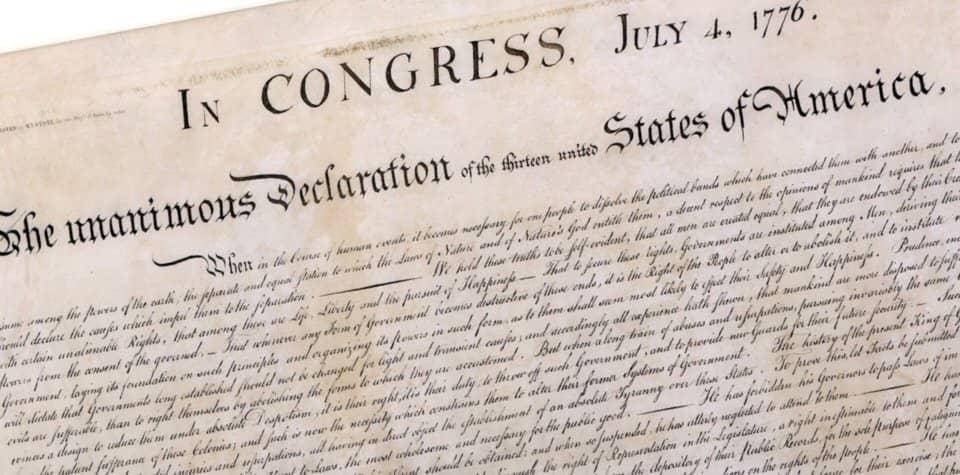 In CONGRESS, July 4, 1776.
The unanimous Declaration of the thirteen united States of America,
When in the Course of human events, it becomes necessary for one people to dissolve the political bands which have connected them with another, and to
among the powers of the earth, the separate and equal station to which the Laws of Nature and of Nature's God entitle them, a decent respect to the opinions of mankind requires that
should declare the causes which impel them to the separation. — We hold these truths to be self-evident, that all men are created equal, that they are endowed by their
with certain unalienable Rights, that among these are Life, Liberty and the pursuit of Happiness — That to secure these rights, Governments are instituted among Men, deriving their
powers from the consent of the governed, — That whenever any Form of Government becomes destructive of these ends, it is the Right of the People to alter or to abolish it, and to institute
Government, laying its foundation on such principles and organizing its powers in such form, as to them shall seem most likely to effect their Safety and Happiness. Prudence,
will dictate that Governments long established should not be changed for light and transient causes; and accordingly all experience hath shewn, that mankind are more disposed to
evils are sufferable, than to right themselves by abolishing the forms to which they are accustomed. But when a long train of abuses and usurpations, pursuing invariably the same
evinces a design to reduce them under absolute Despotism, it is their right, it is their duty, to throw off such Government, and to provide new Guards for their future security. — Such
the patient sufferance of these Colonies; and such is now the necessity which constrains them to alter their former Systems of Government. The history of the present King of
injuries and usurpations, all having in direct object the establishment of an absolute Tyranny over these States. To prove this, let Facts be submitted
to Laws, the most wholesome and necessary for the public good. — He has forbidden his Governors to pass Laws of
should be obtained; and when so suspended, he has utterly neglected to attend to them. — He has
the right of Representation in the Legislature, a right inestimable to them and
the depository of their Public Records, for the sole purpose of
on the rights of the people. — He has